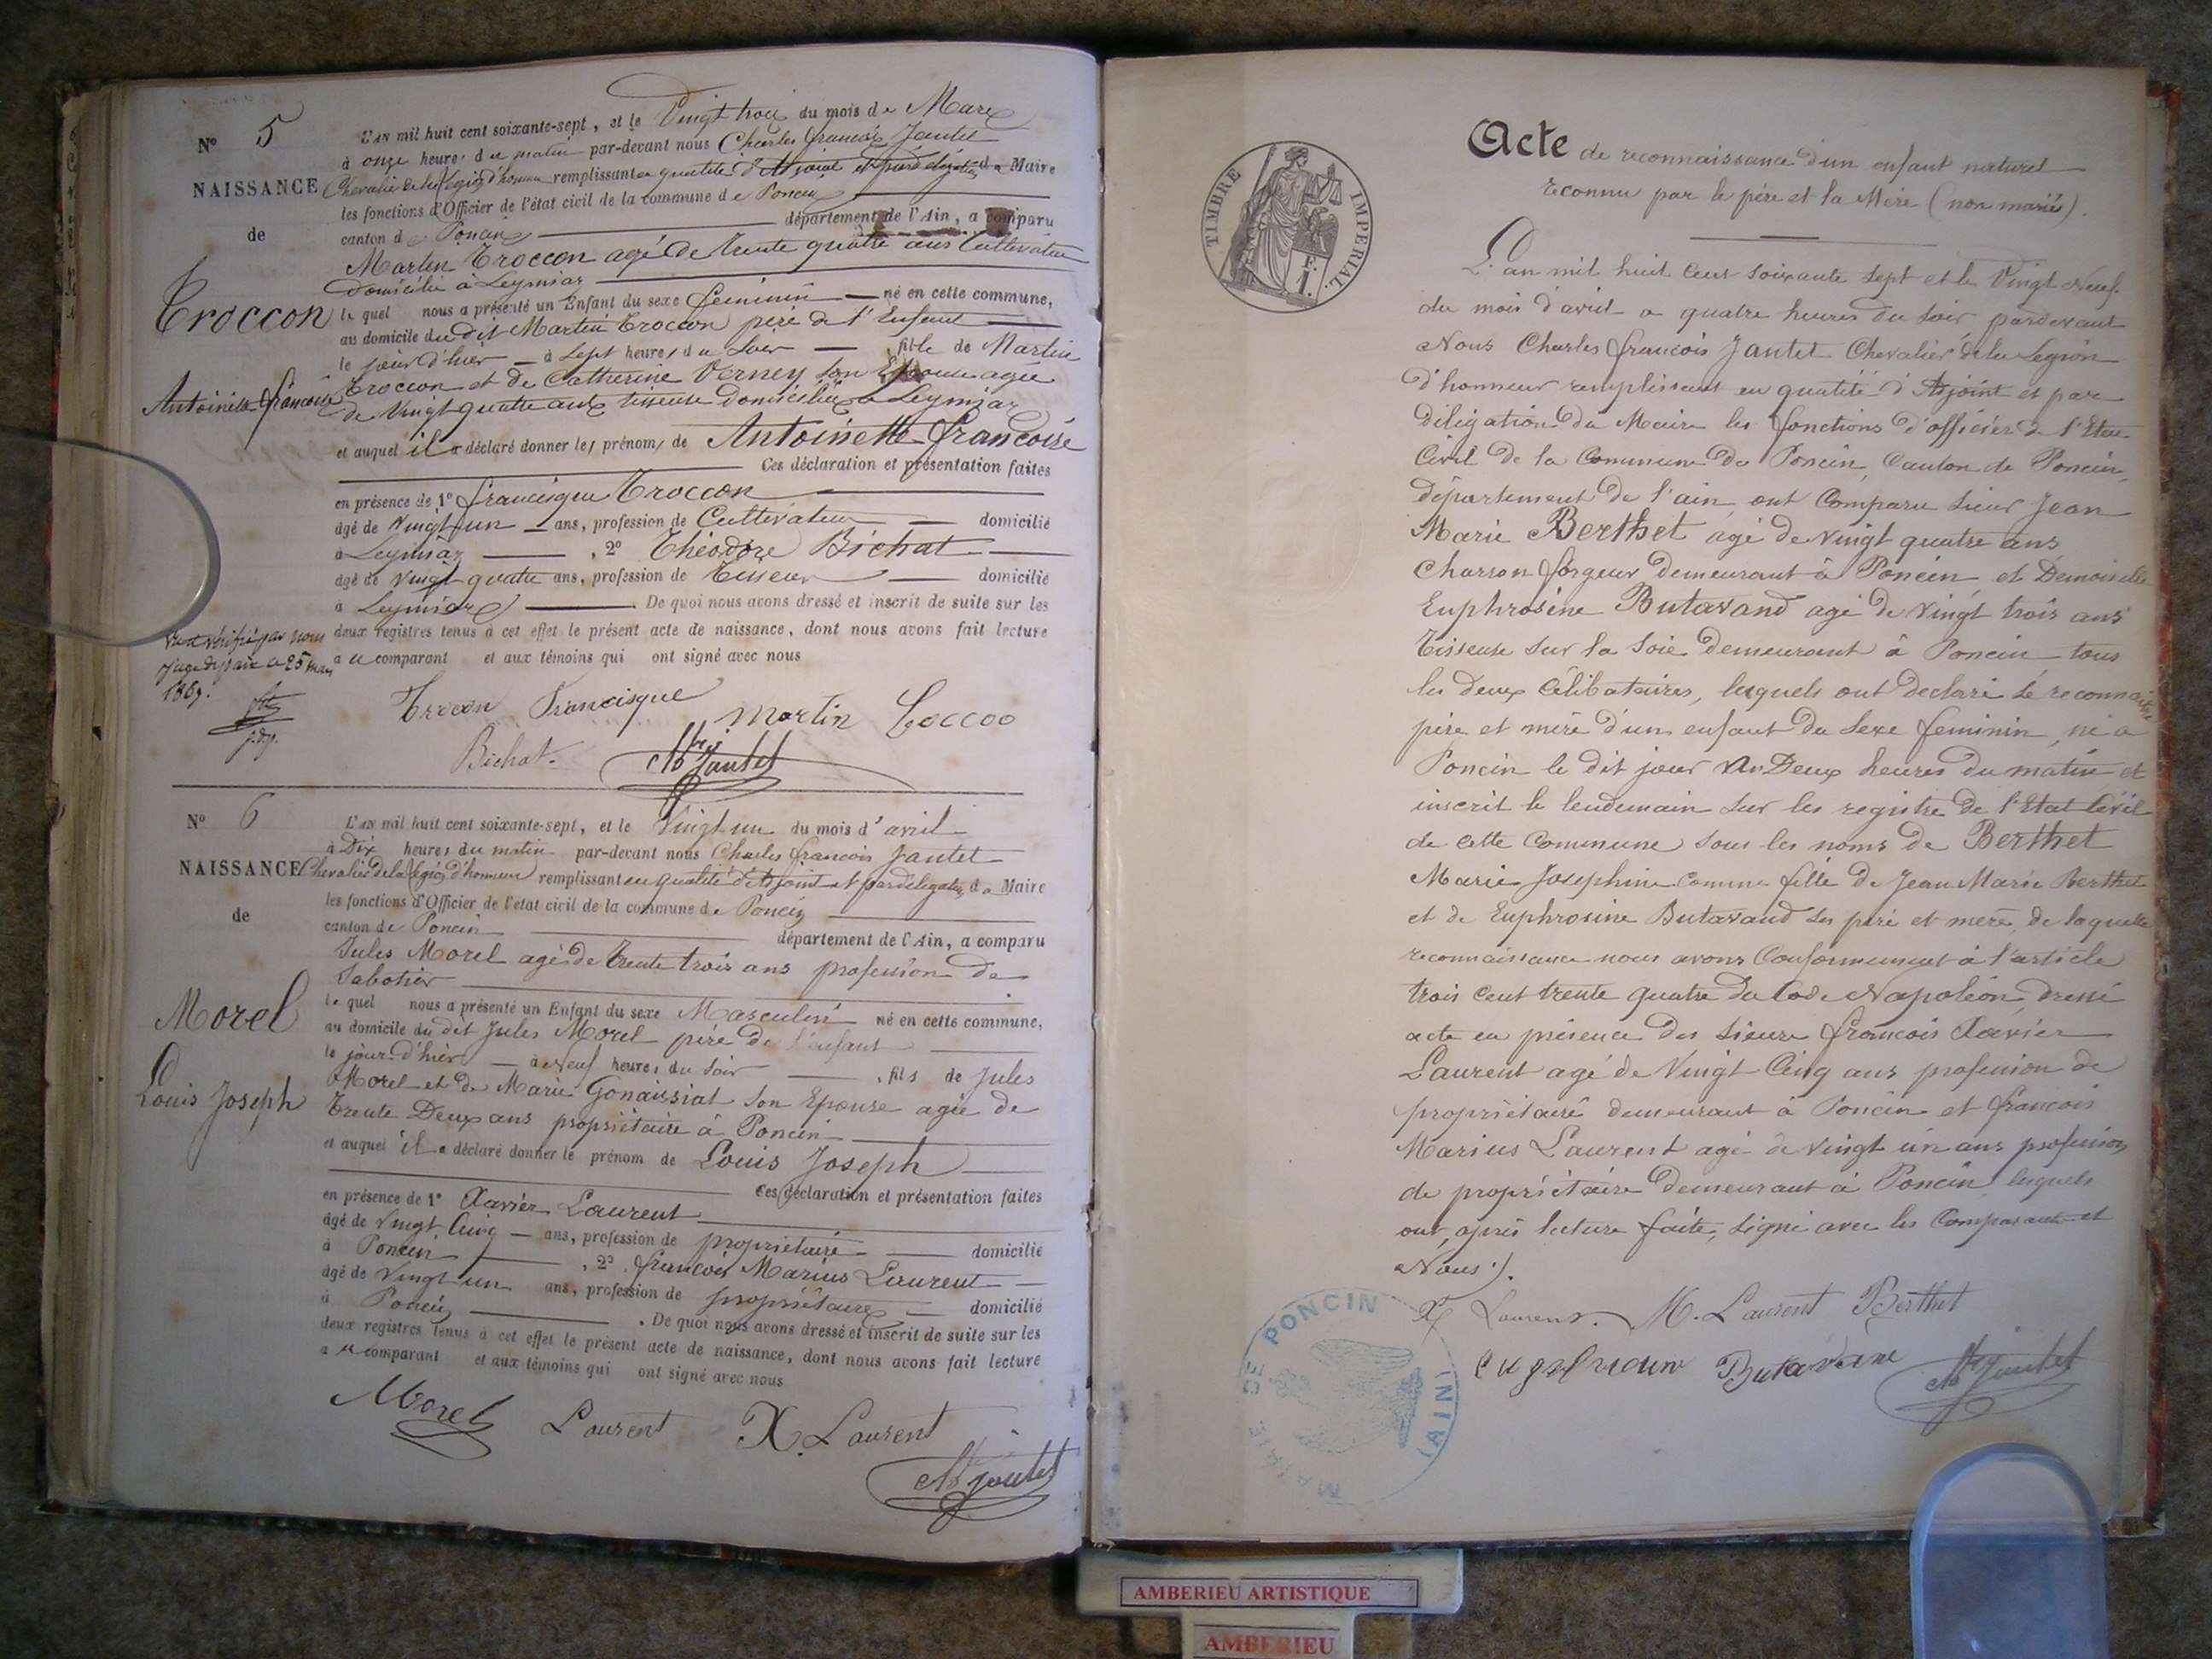 N° 5
NAISSANCE
de
Troccon
Antoinette françoise
L'AN mil huit cent soixante-sept, et le Vingt trois du mois de Mars
à onze heures du matin par-devant nous Charles françois Jantet
Chevalier de la Legion d'honneur remplissant en qualité d'Adjoint et par délégation du Maire
les fonctions d'Officier de l'état civil de la commune de Poncin
canton de Poncin département de l'Ain, a comparu
Martin Troccon agé de trente quatre ans Cultivateur
domicilié à Leymiaz
le quel nous a présenté un Enfant du sexe feminin né en cette commune,
au domicile du dit Martin Troccon père de l'Enfant
le jour d'hier à Sept heures du Soir fille de Martin
Troccon et de Catherine Verney son Epouse agée
de Vingt quatre ans tisseuse domiciliée à Leymiaz
et auquel il a déclaré donner les prénoms de Antoinette françoise
Ces déclaration et présentation faites
en présence de 1° francisque Troccon
âgé de vingt un ans, profession de Cultivateur domicilié
à Leymiaz , 2° Théodore Bichat
âgé de vingt quatre ans, profession de Tisseur domicilié
à Leymiaz . De quoi nous avons dressé et inscrit de suite sur les
deux registres tenus à cet effet le présent acte de naissance, dont nous avons fait lecture
a u comparant et aux témoins qui ont signé avec nous
Vu et vérifié par nous
Juge de paix ce 25 mars
j. d. p.
Trocon Francisque Martin Toccoo
Bichat Ch Jantet
N° 6
NAISSANCE
de
Morel
Louis Joseph
L'AN mil huit cent soixante-sept, et le Vingt un du mois d'avril
à Dix heures du matin par-devant nous Charles françois Jantet
Chevalier de la Legion d'honneur remplissant en qualité d'Adjoint et par délégation du Maire
les fonctions d'Officier de l'état civil de la commune de Poncin
canton de Poncin département de l'Ain, a comparu
Jules Morel agé de Trente trois ans profession de
Sabotier
le quel nous a présenté un Enfant du sexe Masculin né en cette commune,
au domicile du dit Jules Morel père de l'enfant
le jour d'hier à Neuf heures du Soir , fils de Jules
Morel et de Marie Gonaissiat Son Epouse agée de
Trente Deux ans propriétaire à Poncin
et auquel il a déclaré donner le prénom de Louis Joseph
Ces déclaration et présentation faites
en présence de 1° Xavier Laurent
âgé de Vingt Cinq ans, profession de propriétaire domicilié
à Poncin , 2° françois Marius Laurent
âgé de Vingt un ans, profession de propriétaire domicilié
à Poncin . De quoi nous avons dressé et inscrit de suite sur les
deux registres tenus à cet effet le présent acte de naissance, dont nous avons fait lecture
a u comparant et aux témoins qui ont signé avec nous
Morel Laurent X. Laurent
Ch Jantet
TIMBRE IMPERIAL
1 F.
Acte de reconnaissance d'un enfant naturel
reconnu par le père et la Mère (non mariés).
L'an mil huit cent soixante sept et le Vingt Neuf
du mois d'avril a quatre heures du Soir pardevant
Nous Charles françois Jantet Chevalier de la Legion
d'honneur remplissant en qualité d'Adjoint et par
Déligation du Maire les fonctions d'officier de l'Etat
Civil de la Commune de Poncin Canton de Poncin,
département de l'ain, ont Comparu Sieur Jean
Marie Berthet agé de vingt quatre ans
Charron forgeur demeurant à Poncin et Demoiselle
Euphrosine Butavand agé de vingt trois ans
Tisseuse sur la Soie demeurant à Poncin tous
les deux Célibataires, lesquels ont declaré se reconnaitre
père et mère d'un enfant du sexe feminin, né a
Poncin le dit jour Deux heures du matin et
inscrit le lendemain sur les registre de l'Etat Civil
de cette Commune sous les noms de Berthet
Marie Josephine comme fille de Jean Marie Berthet
et de Euphrosine Butavand ses père et mère, de laquelle
reconnaissance nous avons Conformement à l'article
trois cent trente quatre du Code Napoléon dressé
acte en présence des Sieurs francois Xavier
Laurent agé de Vingt Cinq ans profession de
propriétaire demeurant à Poncin et francois
Marius Laurent agé de vingt un ans profession
de propriétaire demeurant à Poncin lesquels
ont, après lecture faite, signé avec les Comparants et
Nous.
X Laurent. M. Laurent Berthet
Butavane Ch Jantet
MAIRIE DE PONCIN (AIN)
AMBERIEU ARTISTIQUE
AMBERIEU